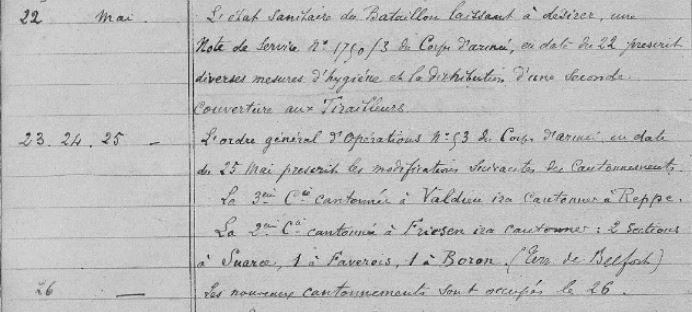 22 Mai. L'état sanitaire du Bataillon laissant à désirer, une
Note de Service N° 1750/3 du Corps d'armée, en date du 22 prescrit
diverses mesures d'hygiène et la distribution d'une seconde
couverture aux Tirailleurs.
23. 24. 25 — L'ordre général d'Opérations N° 53 du Corps d'armée, en date
du 25 Mai prescrit les modifications suivantes des cantonnements
La 3ème Cie cantonnée à Valdieu ira cantonner à Reppe.
La 2ème Cie cantonnée à Friesen ira cantonner : 2 Sections
à Suarce, 1 à Faverois, 1 à Boron. (Terr. de Belfort)
26 — Les nouveaux cantonnements sont occupés le 26.